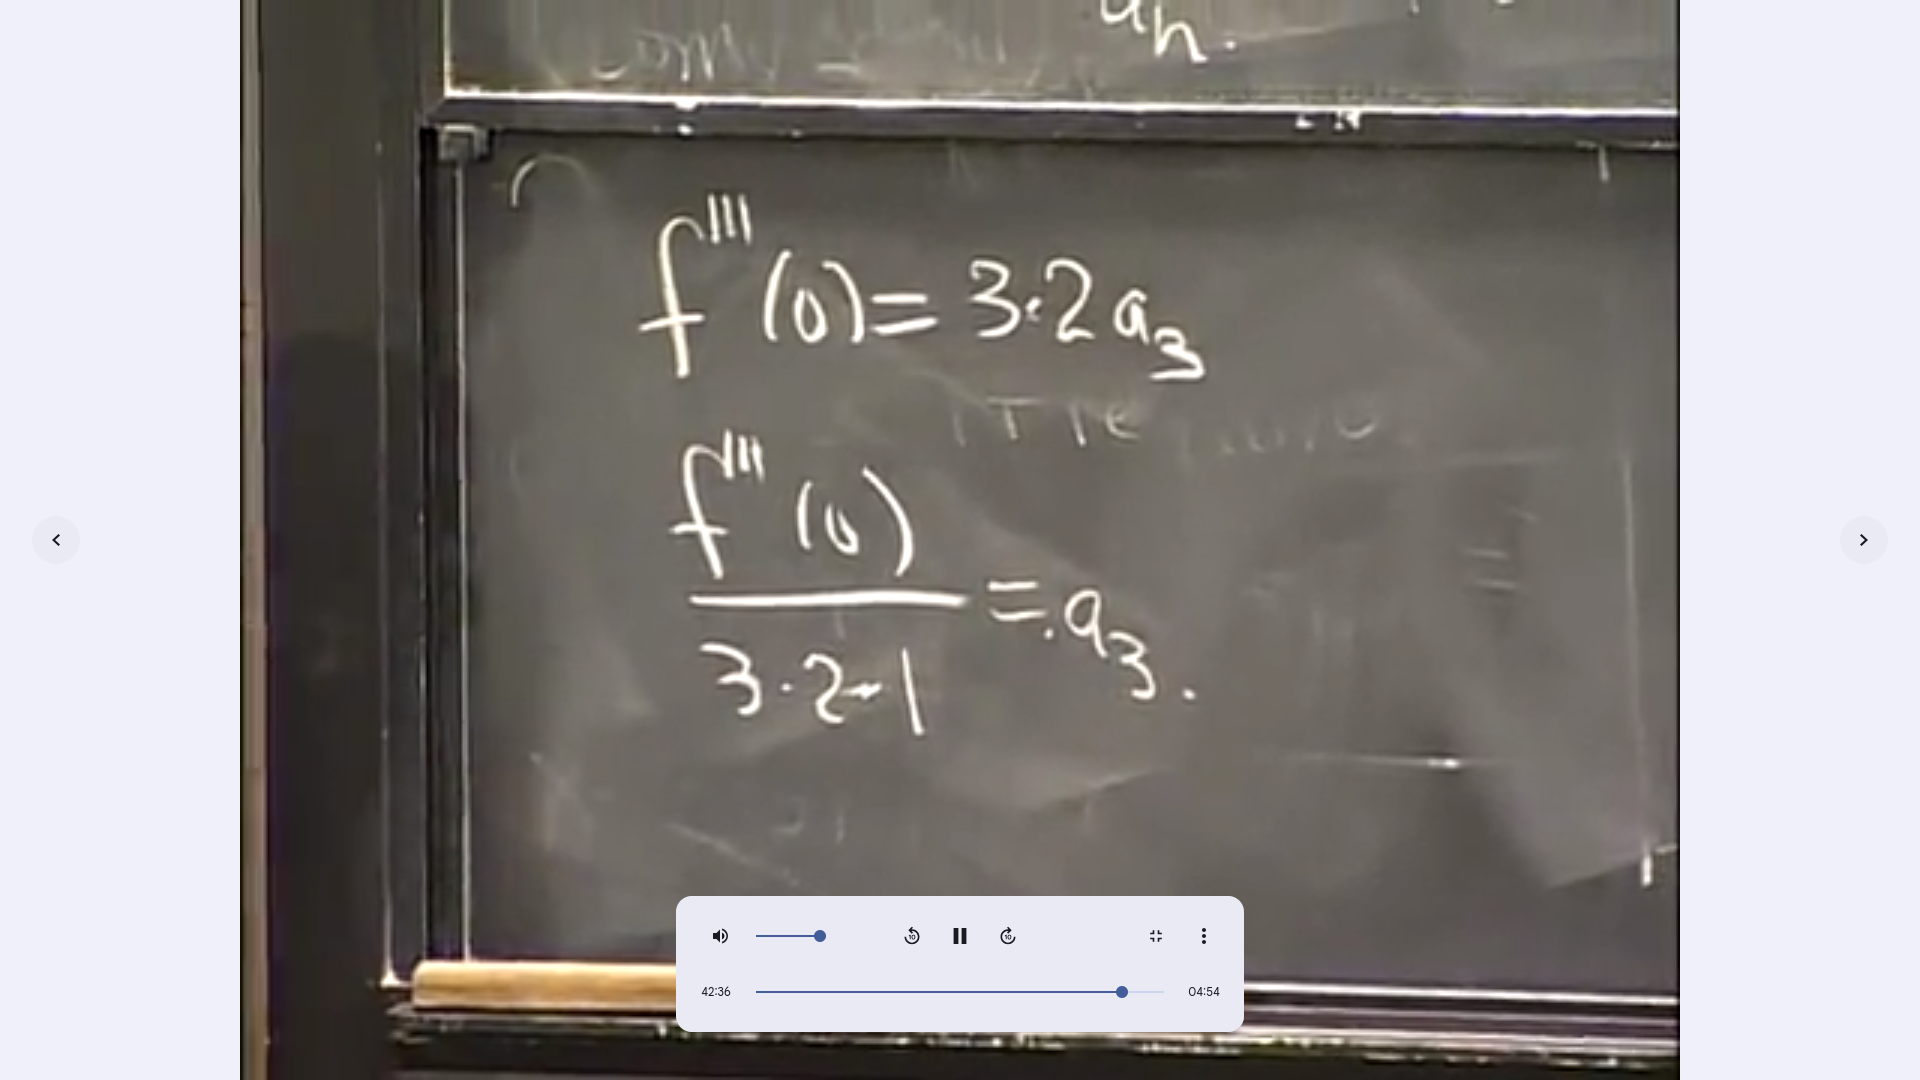 aₙ.
f'''(0) = 3·2 a₃
f'''(0)
3·2·1
= a₃.
10
10
42:36
04:54